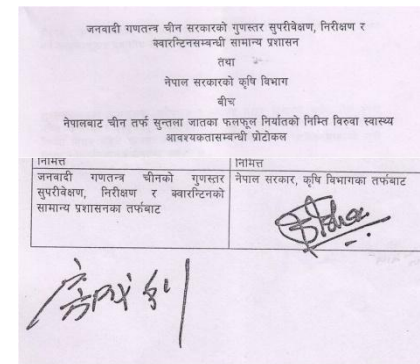 जनवादी गणतन्त्र चीन सरकारको गुणस्तर सुपरीवेक्षण, निरीक्षण र
क्वारन्टिनसम्बन्धी सामान्य प्रशासन
तथा
नेपाल सरकारको कृषि विभाग
बीच
नेपालबाट चीन तर्फ सुन्तला जातका फलफूल निर्यातको निम्ति विरुवा स्वास्थ्य
आवश्यकतासम्बन्धी प्रोटोकल
निमित्त
निमित्त
जनवादी गणतन्त्र चीनको गुणस्तर
सुपरीवेक्षण, निरीक्षण र क्वारन्टिनको
सामान्य प्रशासनका तर्फबाट
नेपाल सरकार, कृषि विभागका तर्फबाट